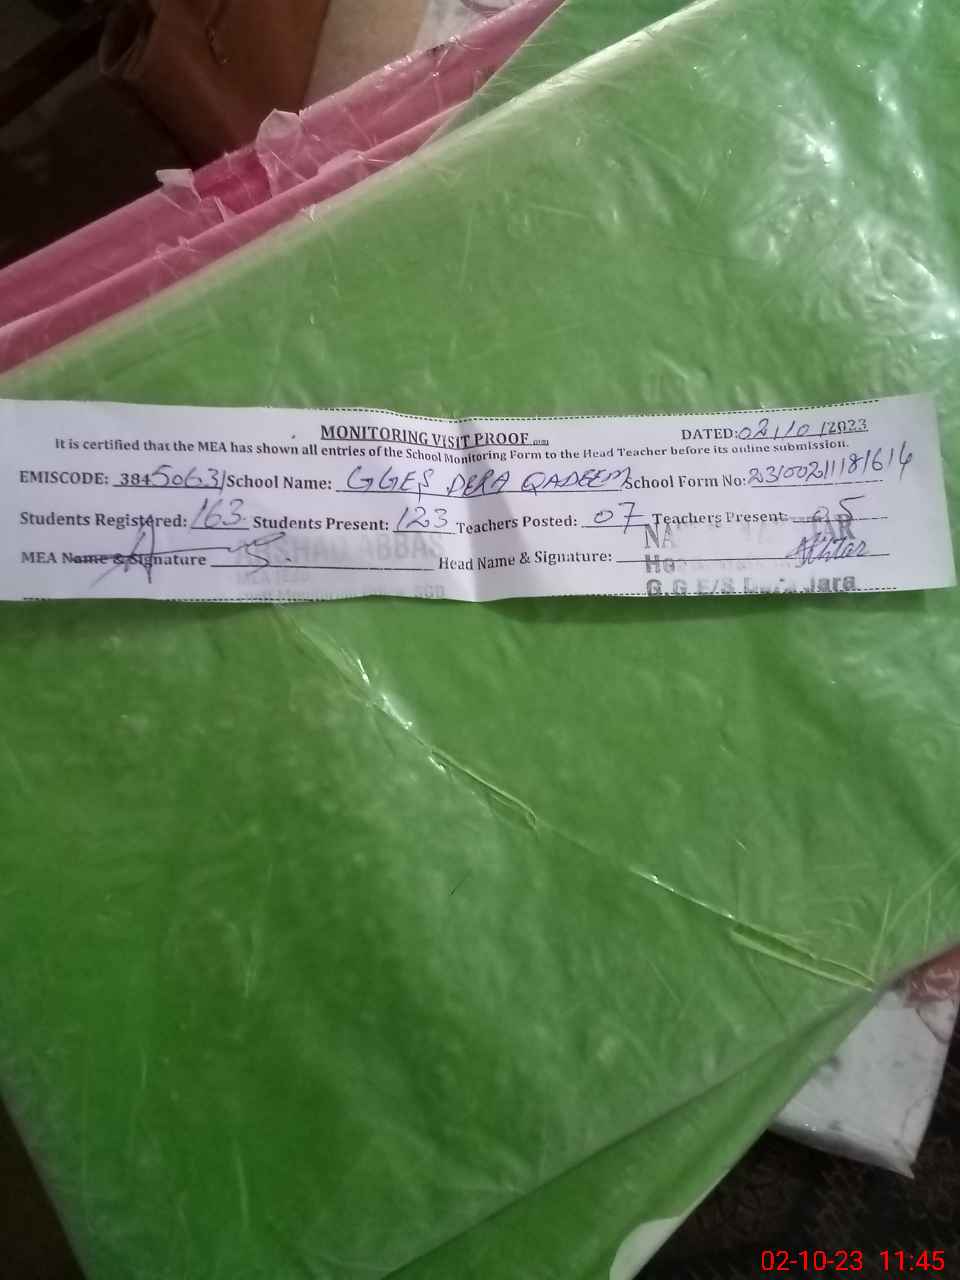 MONITORING VISIT PROOF
DATED: 02/10/2023
It is certified that the MEA has shown all entries of the School Monitoring Form to the Head Teacher before its online submission.
EMISCODE: 3845063/ School Name: GGES DERA QADEEM School Form No: 231002111181614
Students Registered: 163 Students Present: 123 Teachers Posted: 07 Teachers Present: 05
MEA Name & Signature Head Name & Signature: Akhtar
ABBAS
G.G.E/S Jara
02-10-23 11:45